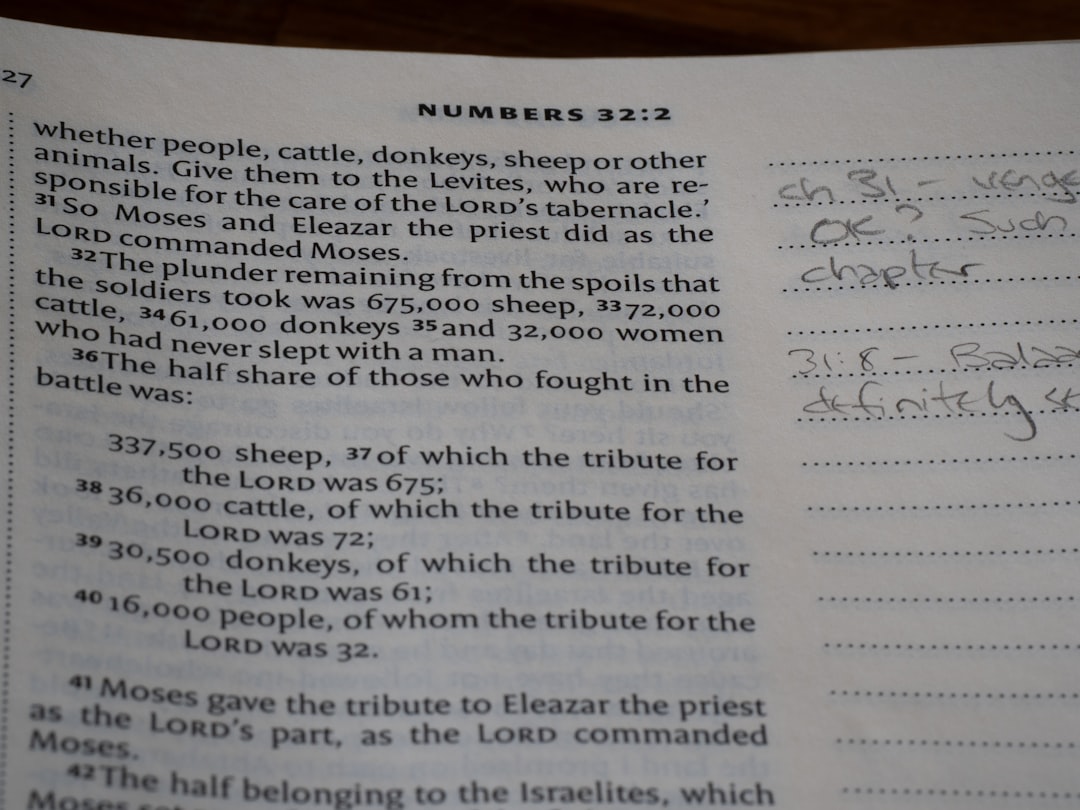 27
NUMBERS 32:2
whether people, cattle, donkeys, sheep or other
animals. Give them to the Levites, who are re-
sponsible for the care of the LORD's tabernacle.'
31 So Moses and Eleazar the priest did as the
LORD commanded Moses.
32 The plunder remaining from the spoils that
the soldiers took was 675,000 sheep, 33 72,000
cattle, 34 61,000 donkeys 35 and 32,000 women
who had never slept with a man.
36 The half share of those who fought in the
battle was:
337,500 sheep, 37 of which the tribute for
the LORD was 675;
38 36,000 cattle, of which the tribute for the
LORD was 72;
39 30,500 donkeys, of which the tribute for
the LORD was 61;
40 16,000 people, of whom the tribute for the
LORD was 32.
41 Moses gave the tribute to Eleazar the priest
as the LORD's part, as the LORD commanded
Moses.
42 The half belonging to the Israelites, which
Moses
ch 31 - venge
OK? Such
chapter
31:8 - Balaa
definitely